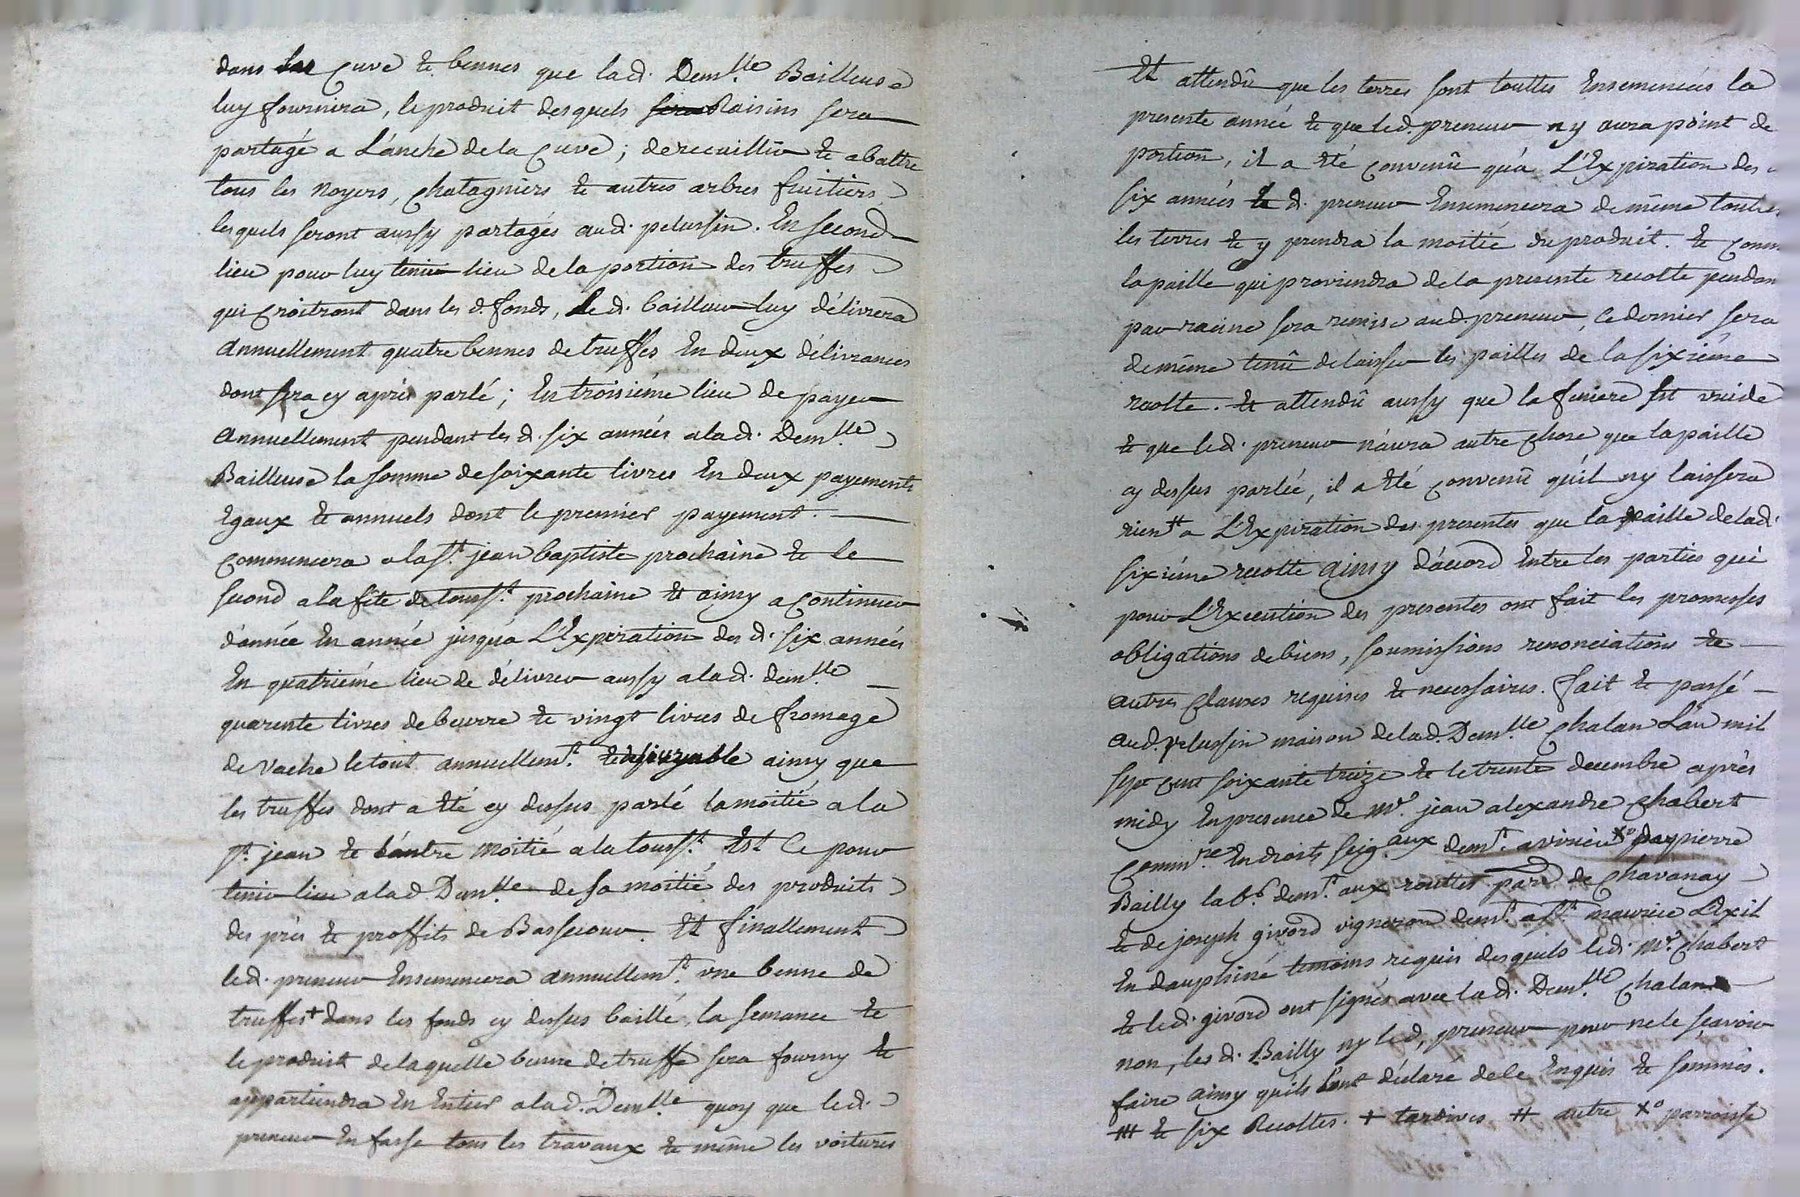 dans les Cuve et bennes que lad. Dem.lle Bailleuse
luy fournira, le produit desquels sera Raisins sera
partagé a L'anche de la Cuve; de recuillir et abattre
tous les noyers, Chatagniers et autres arbres fruitiers
lesquels seront aussy partagés aud. pelussin. En second
lieu pour luy tenir lieu de la portion des truffes
qui Croitront dans les d. fonds, Led. bailleur luy délivrera
annuellement quatre bennes de truffes En deux délivrances
dont sera cy après parlé; En troisième lieu de payer
annuellement pendant les d. six années a lad. Dem.lle
Bailleuse la somme de soixante livres En deux payements
Egaux et annuels dont le premier payement
Commencera a la S.t jean baptiste prochaine et le
second a la fête de touss.t prochaine et ainsy a Continuer
d'année En année jusqu'a L'Expiration des d. six années
En quatriéme lieu de délivrer aussy a lad. dem.lle
quarente livres de beurre et vingt livres de fromage
de vache le tout annuellem.t et délivrable ainsy que
les truffes dont a été cy dessus parlé la moitié a la
S.t jean et l'autre moitié a la touss.t Et Ce pour
tenir lieu a lad. Dem.lle de sa moitié des produits
des prés et proffits de Bassecour. Et finallement
led. preneur Ensemencera annuellem.t une benne de
truffes + dans les fonds cy dessus baillé, la semance et
le produit de laquelle benne de truffe sera fourny et
appartiendra En Entier a lad. Dem.lle quoy que led.
preneur En fasse tous les travaux et même les voitures
Et attendû que les terres sont touttes Ensemencées la
presente année et que led. preneur n'y aura point de
portion, il a été Convenû qu'a L'Expiration des
six années le d. preneur Ensemencera de même toutes
les terres et y prendra la moitié du produit. et Comme
la paille qui proviendra de la presente recolte pendan
par racine sera remise aud. preneur, Ce dernier sera
de même tenû de laisser les pailles de la sixiéme
recolte. et attendû aussy que la feniere est vuide
et que led. preneur n'aura autre Chose que la paille
cy dessus parlée, il a été Convenû qu'il ny laissera
rien # a L'Expiration des presentes que la paille de lad.
sixiéme recolte ainsy d'acord Entre les parties qui
pour L'Execution des presentes ont fait les promesses
obligations de biens, soumissions renonciations et
autres Clauses requises et necessaires. fait et passé
aud. pelussin maison de lad. Dem.lle Chalan L'an mil
sept Cent soixante treize et le trente decembre après
midy En presence de M.e jean alexandre Chabert
Comm.re En droits seig.aux dem.t a virieu x° pierre
Bailly lab.r dem.t aux routtes par de Chavanay
et de joseph givord vigneron dem.t a S.t maurice L'Exil
En dauphiné temoins requis desquels led. M.e Chabert
et led. givord ont signés avec lad. Dem.lle Chalan
non, led. Bailly ny led, preneur pour ne le scavoir
faire ainsy qu'ils l'ont déclare de ce Enquis et sommés.
### et six Recoltes. + tardives # autre x° parroisse